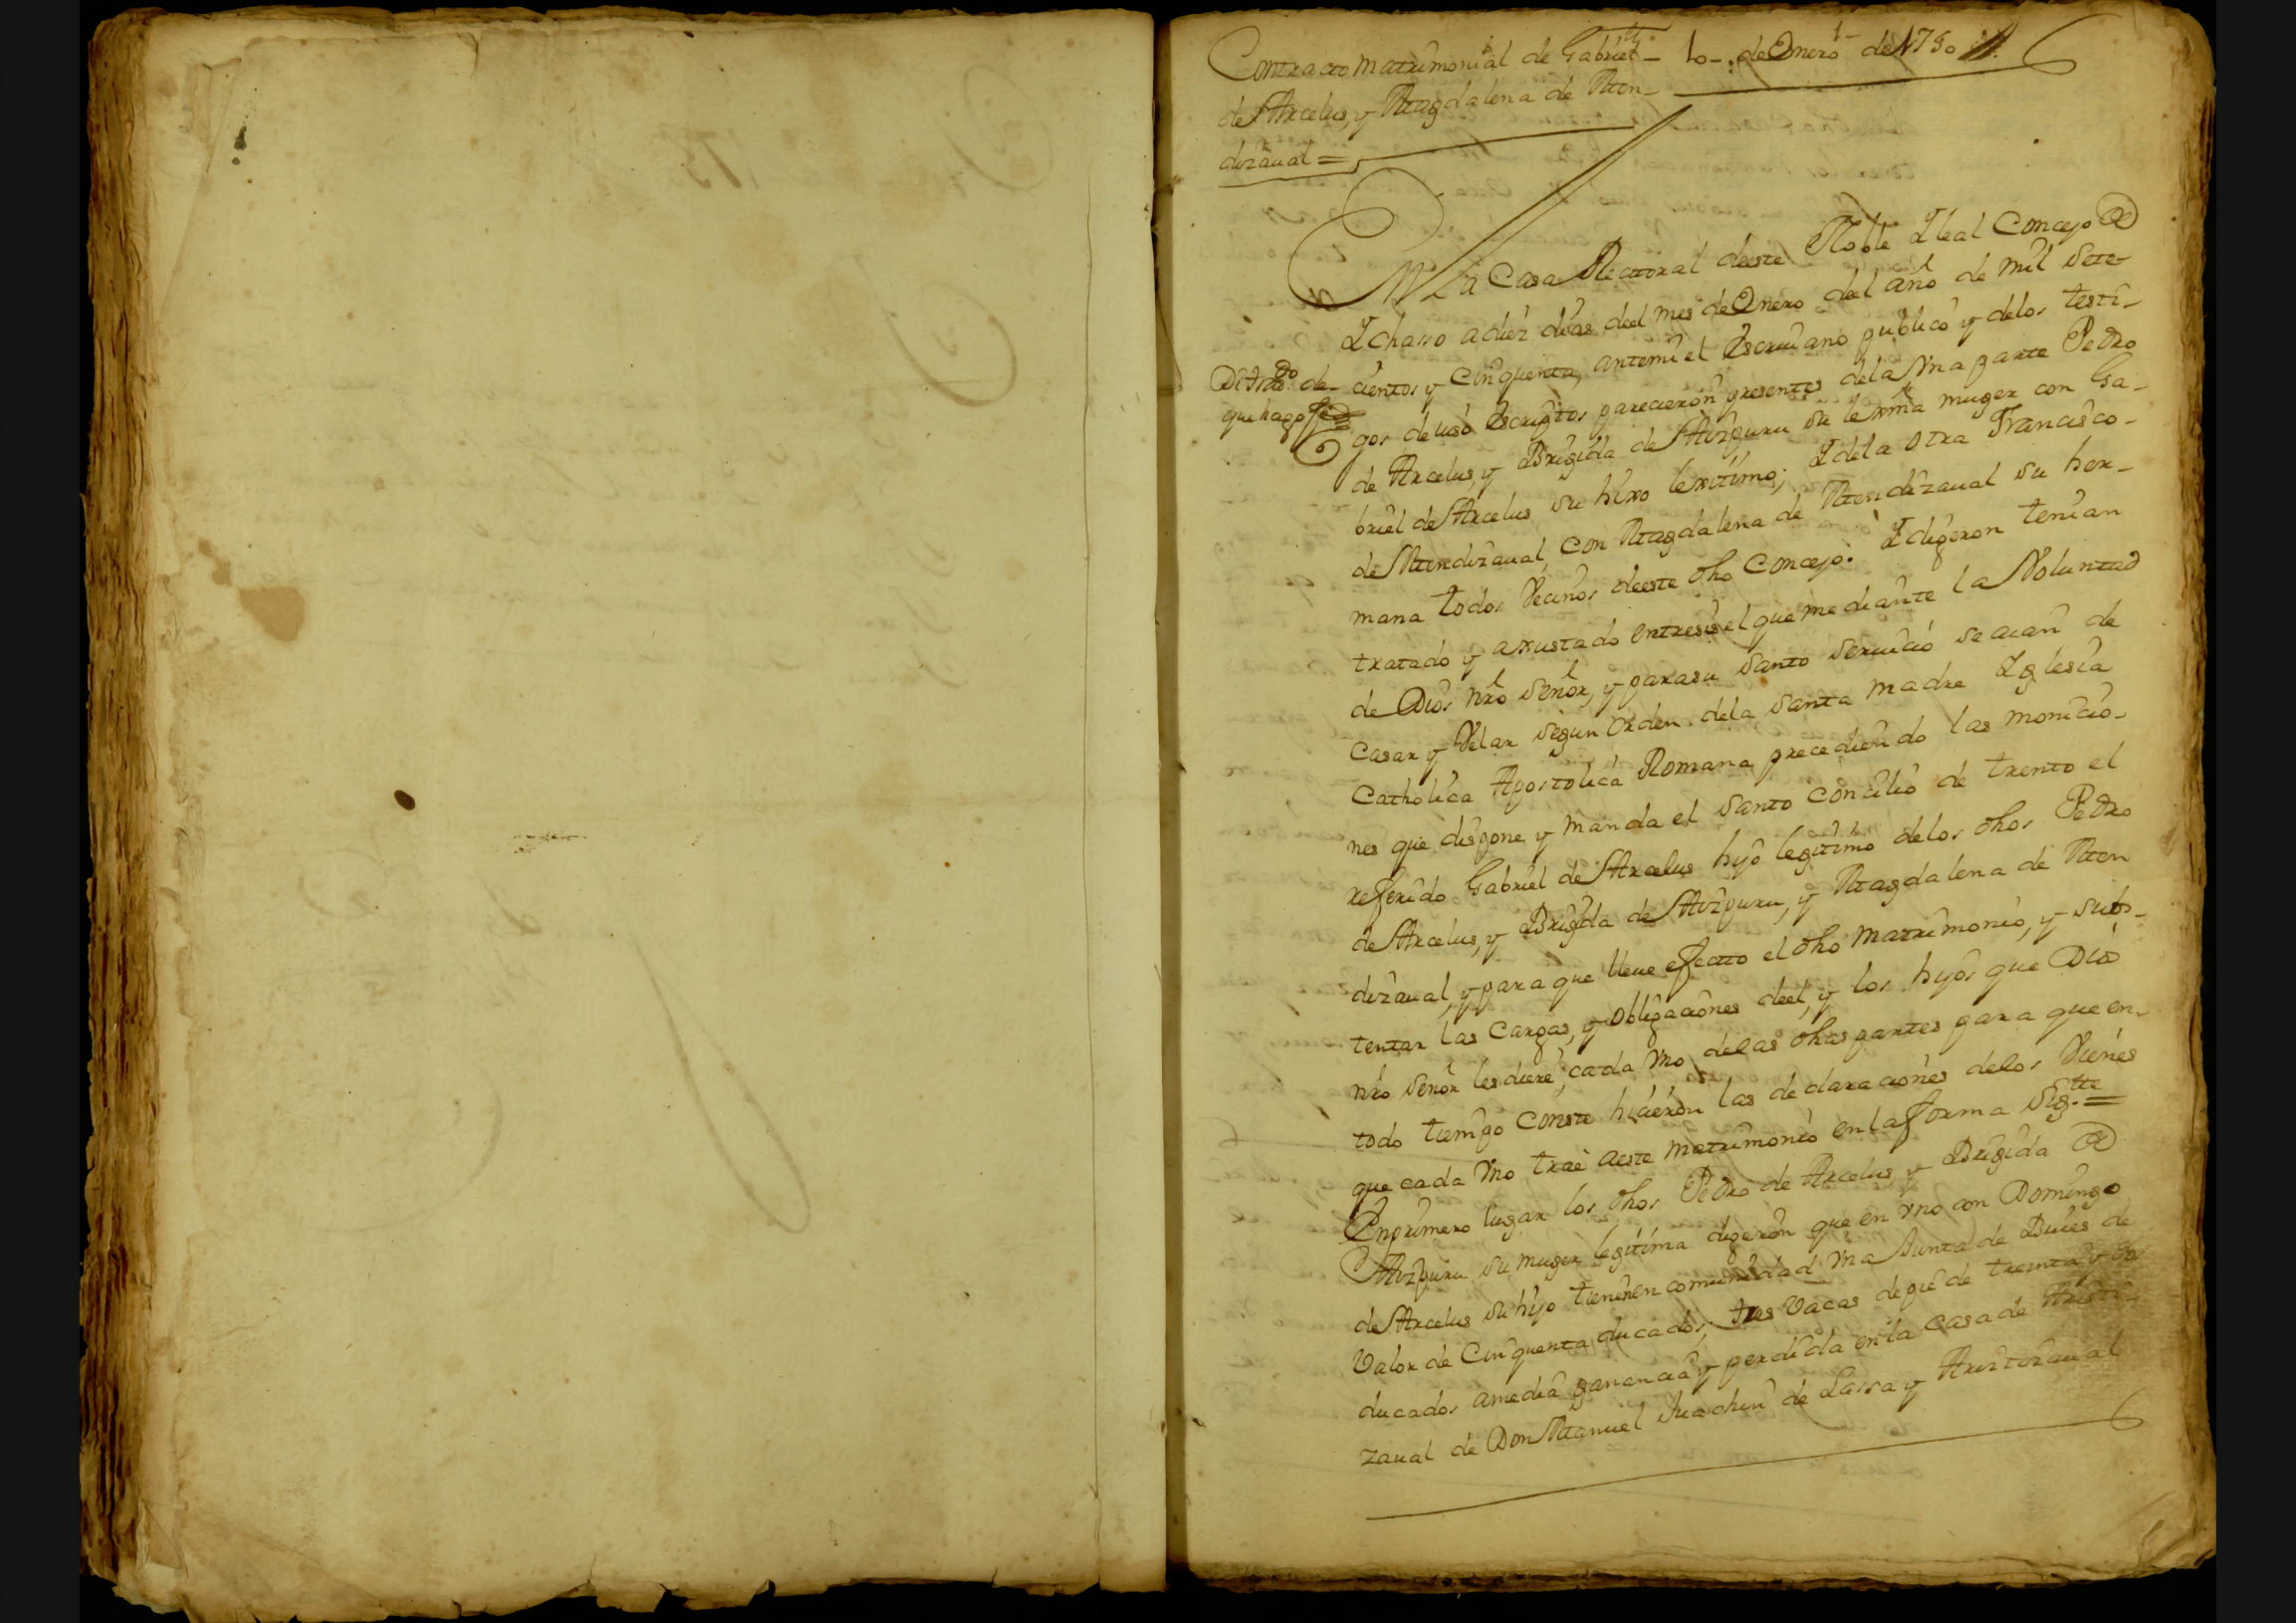 Contracto matrimonial de Gabriel- 10-. de Enero de 1750
de Arcelus, y Magdalena de Men-
dizaual =
En La Casa Rectoral deeste Noble Y leal Concejo de
Ychasso a diez dias deel mes de Enero del año de mil sete-
cientos y Cinquenta, antemi el Escriuano publico y delos testi-
gos deuso escriptos parecieron presentes dela Vna parte Pedro
de Arcelus, y Brigida de Aizpuru su lexma muger con Ga-
briel de Arcelus su hixo lexitimo; Y dela otra Francisco-
de Mendizaual, con Magdalena de Mendizaual su her-
mana todos Vecinos deeste dho Concejo: Y digeron tenian
tratado y axustado entresi el que mediante la Voluntad
de Dios nro señor, y parasu santo seruicio se aian de
Casar y Velar segun orden dela santa madre Yglesia
Catholica Apostolica Romana precediendo las monicio-
nes que dispone y manda el santo concilio de trento el
referido Gabriel de Arcelus hijo legitimo delos dhos Pedro
de Arcelus, y Brigida de Aizpuru, y Magdalena de Men
dizaual, y para que lleue efecto el dho matrimonio, y sus-
tentar las Cargas, y obligaciones deel, y los hijos que Dios
nro señor les diere, cada Vno delas dhas partes para que en-
todo tiempo Conste hicieron las declaraciones delos Vienes
que cada Vno trae aeste matrimonio enla forma sigtte=
Enprimero lugar los dhos Pedro de Arcelus, y Brigida de
Aizpuru su muger legitima digeron que en Vno con Domingo
de Arcelus su hijo tienen en comunidad Vna Junta de Buies de
Valor de Cinquenta ducados; tres Vacas de pie de treinta y dos
ducados amedia ganancia y perdida en la Casa de Aristi-
zaual de Don Manuel Juachin de Lassa y Ariztizaual
Distrito de-
que hago fe